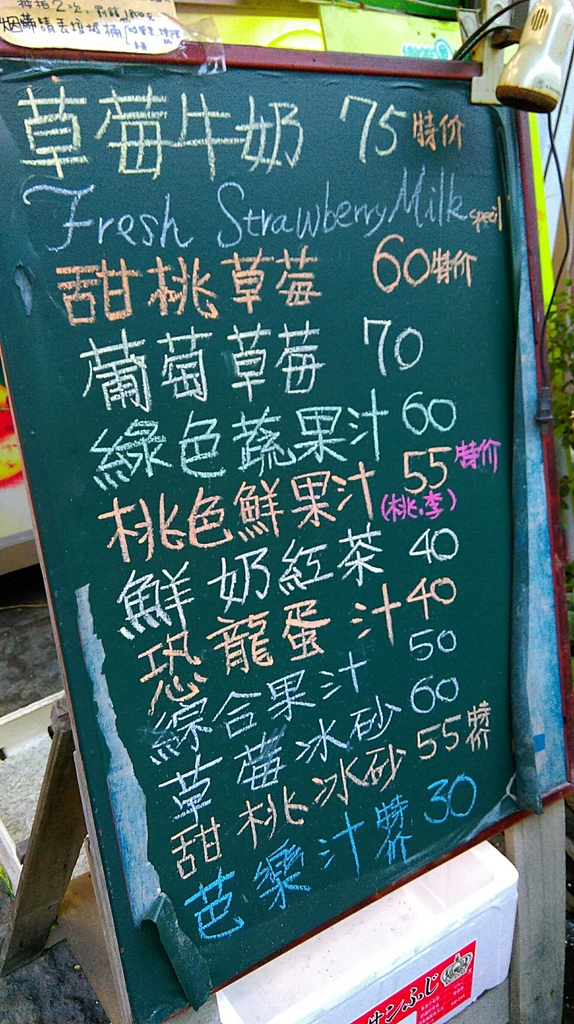 烟蒂請丟垃圾桶
草莓牛奶 75 特价
Fresh Strawberry Milk specil
甜桃草莓 60 特价
葡萄草莓 70
綠色蔬果汁 60
桃色鮮果汁 55 特价
(桃.李)
鮮奶紅茶 40
恐龍蛋汁 40
綜合果汁 50
草莓冰砂 60
甜桃冰砂 55 特价
芭樂汁 特价 30
サンふじ